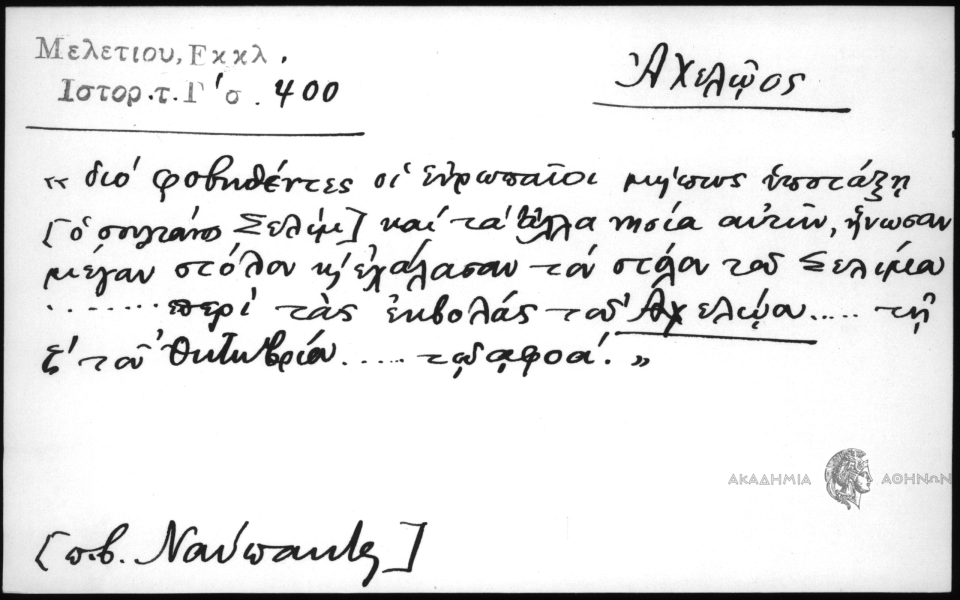 Μελετιου, Εκκλ.
Ιστορ. τ. Γ' σ. 400
Ἀχελῷος
« διό φοβηθέντες οἱ εὐρωπαῖοι μήπως ὑποτάξῃ
[ὁ σουλτάνος Σελίμ] καί τά ἄλλα νησία αὐτῶν, ἥνωσαν
μέγαν στόλον κ' ἐχάλασαν τόν στόλον τοῦ Σελίμη
....... περί τὰς ἐκβολάς τοῦ Ἀχελῴου ..... τῇ
ζ' τοῦ Ὀκτωβρίου ..... τῷ αφοα'. »
ΑΚΑΔΗΜΙΑ ΑΘΗΝΩΝ
[π.β. Ναύπακτος]